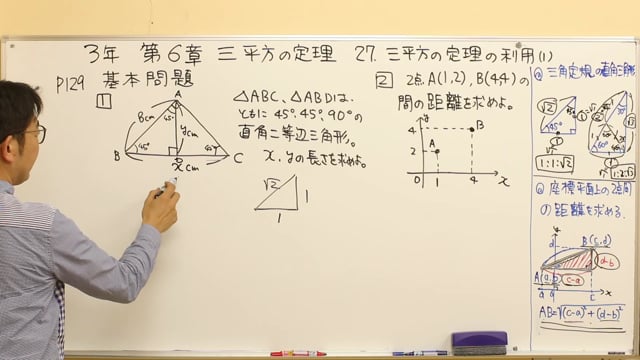 3年 第6章 三平方の定理 27.三平方の定理の利用(1)
P129 基本問題
1
A
8cm
45°
ycm
45°
45°
B
D
C
xcm
△ABC、△ABDは、
ともに45°,45°,90°の
直角二等辺三角形。
x,yの長さを求めよ。
√2
1
1
2 2点A(1,2),B(4,4)の
間の距離を求めよ。
y
4
B
2
A
0
1
4
x
ⓐ三角定規の直角三角形
√2
45°
1
1
1:1:√2
60°
ⓑ座標平面上の2点間
の距離を求める.
y
d
B(c,d)
d-b
A(a,b)
c-a
a
c
x
AB=√(c-a)²+(d-b)²